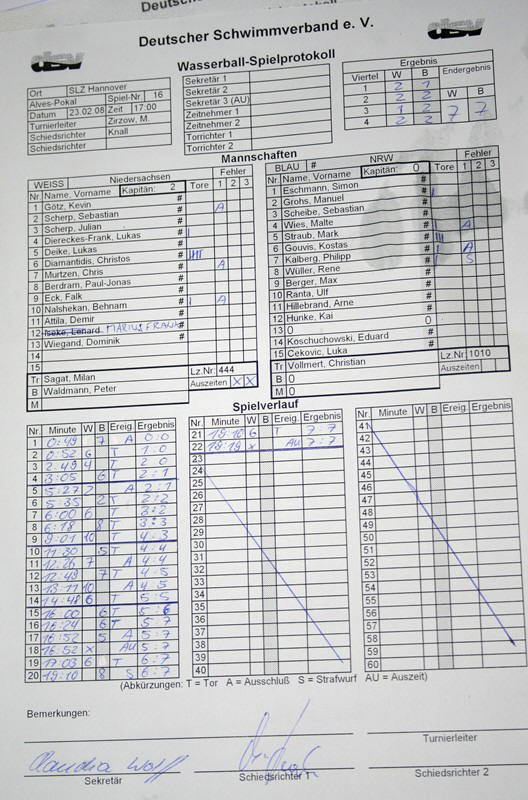 Deutscher Schwimmverband e. V.
dsv
dsv
Wasserball-Spielprotokoll
Ort SLZ Hannover
Alves-Pokal Spiel-Nr. 16
Datum 23.02.08 Zeit 17:00
Turnierleiter Zirzow, M.
Schiedsrichter Knall
Schiedsrichter
Sekretär 1
Sekretär 2
Sekretär 3 (AU)
Zeitnehmer 1
Zeitnehmer 2
Torrichter 1
Torrichter 2
Ergebnis
Viertel W B Endergebnis
1 2 1
2 2 2 W B
3 1 2 7 7
4 2 2
Mannschaften
WEISS Niedersachsen Fehler
Nr. Name, Vorname Kapitän: 2 Tore 1 2 3
1 Götz, Kevin # A
2 Scherp, Sebastian #
3 Scherp, Julian #
4 Diereckes-Frank, Lukas #
5 Deike, Lukas #
6 Diamantidis, Christos #
7 Murtzen, Chris # A
8 Berdram, Paul-Jonas #
9 Eck, Falk #
10 Nalshekan, Behnam # A
11 Attila, Demir #
12 Iseke, Lenard MARIUS FRANK #
13 Wiegand, Dominik #
14
15
Tr Sagat, Milan Lz.Nr: 444
B Waldmann, Peter Auszeiten X X
M
BLAU # NRW Fehler
Nr. Name, Vorname Kapitän: 0 Tore 1 2 3
1 Eschmann, Simon #
2 Grohs, Manuel #
3 Scheibe, Sebastian #
4 Wies, Malte #
5 Straub, Mark # A
6 Gouvis, Kostas # A
7 Kalberg, Philipp # S
8 Wüller, Rene #
9 Berger, Max #
10 Ranta, Ulf #
11 Hillebrand, Arne #
12 Hunke, Kai #
13 0 0
14 Koschuchowski, Eduard #
15 Cekovic, Luka #
Tr Vollmert, Christian Lz.Nr: 1010
B 0 Auszeiten
M 0
Spielverlauf
Nr. Minute W B Ereig. Ergebnis
1 0:49 7 A 0:0
2 0:52 6 T 1:0
3 2:49 4 T 2:0
4 3:05 6 T 2:1
5 5:27 2 A 2:1
6 5:35 2 T 2:2
7 6:00 6 T 3:2
8 6:18 8 T 3:3
9 9:01 10 T 4:3
10 11:30 5 T 4:4
11 12:26 7 A 4:4
12 12:49 7 T 4:5
13 13:11 10 A 4:5
14 14:48 6 T 5:5
15 16:00 6 T 5:6
16 16:24 6 T 5:7
17 16:52 5 A 5:7
18 16:52 x AU 5:7
19 17:03 6 T 6:7
20 19:10 8 S 6:7
Nr. Minute W B Ereig. Ergebnis
21 19:10 6 T 7:7
22 19:19 x AU 7:7
23
24
25
26
27
28
29
30
31
32
33
34
35
36
37
38
39
40
Nr. Minute W B Ereig. Ergebnis
41
42
43
44
45
46
47
48
49
50
51
52
53
54
55
56
57
58
59
60
(Abkürzungen: T = Tor A = Ausschluß S = Strafwurf AU = Auszeit)
Bemerkungen:
Turnierleiter
Claudia Wolff
Sekretär
Schiedsrichter 1
Schiedsrichter 2